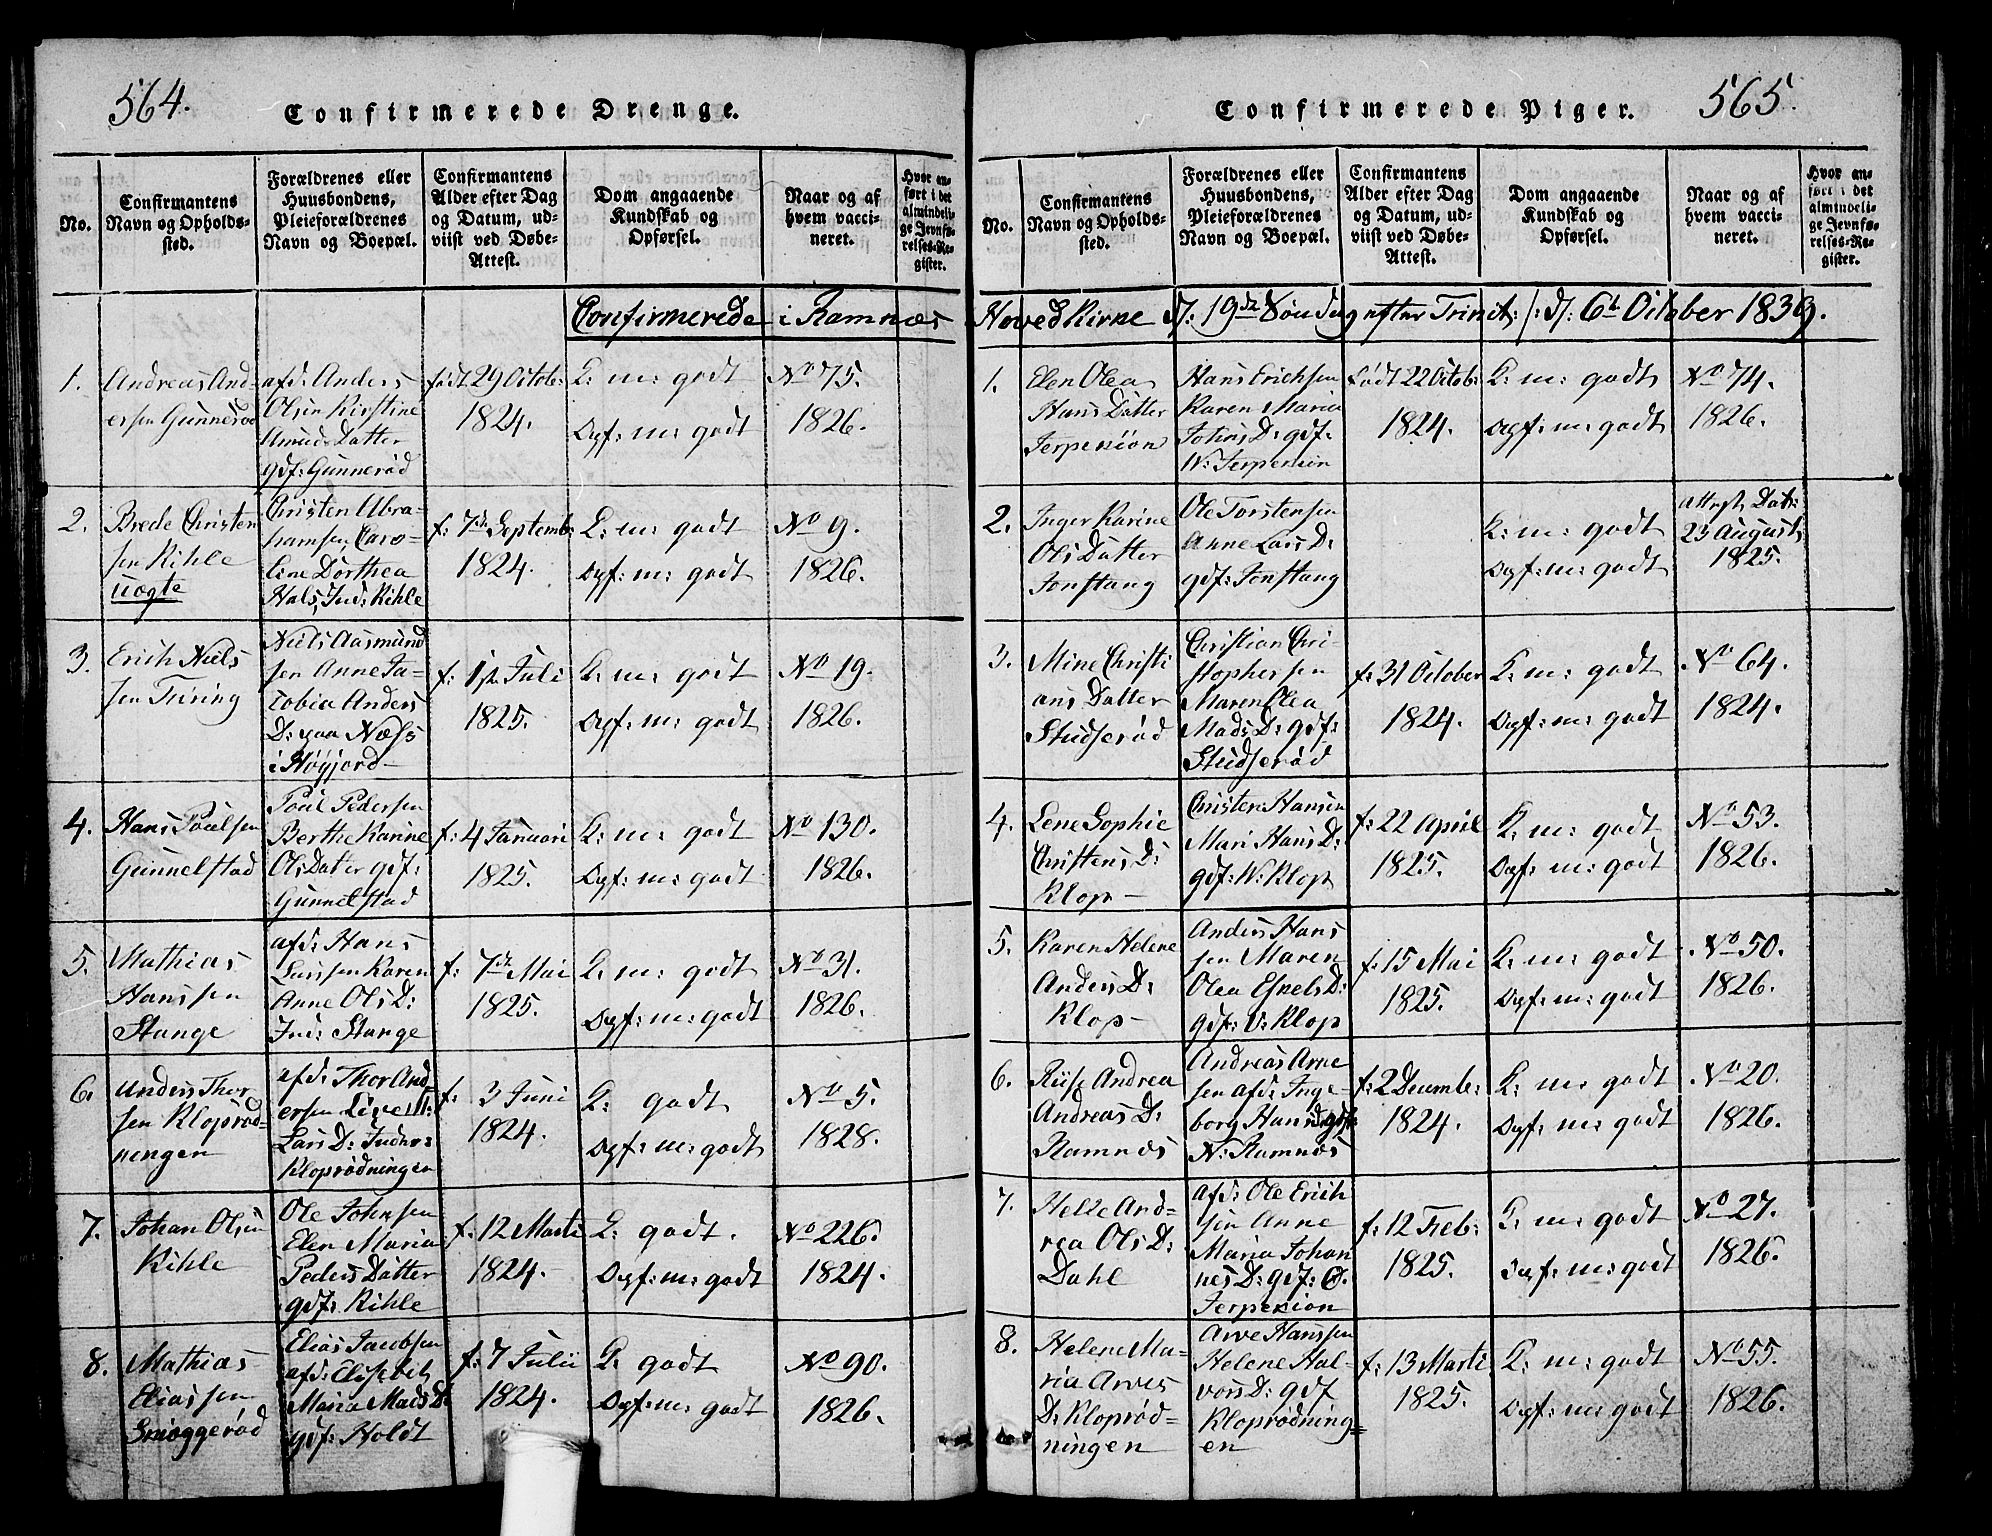 564.
Confirmerede Drenge.
No.
Confirmantens
Navn og Opholds-
sted.
Forældrenes eller
Huusbondens,
Pleieforældrenes
Navn og Boepæl.
Confirmantens
Alder efter Dag
og Datum, ud-
viist ved Døbe-
Attest.
Dom angaaende
Kundskab og
Opførsel.
Naar og af
hvem vacci-
neret.
Hvor an-
ført i det
almindeli-
ge Jevnfø-
relses-Re-
gister.
Confirmerede i Ramnæs
1.
Andreas And-
ersen Gunnerød
afd: Anders
Olsen Kirstine
Amuds Datter
gdf: Gunnerød
født 29 Octob:
1824.
K: m: godt
Opf: m: godt
No 75.
1826.
2.
Brede Christen
sen Kihle
uægte
Christen Abra-
hamsen, Caro-
line Dorthea
Hals, Ind: Kihle
f: 7de Septemb:
1824.
K: m: godt
Opf: m: godt
No 9.
1826.
3.
Erich Niels
sen Tiring
Niels Aasmund
sen Anne Ja-
cobia Anders
D: paa Næss
i Høyjord
f: 1st Juli
1825.
K: m: godt
Opf: m: godt
No 19.
1826.
4.
Hans Poulsen
Gunnelstad
Poul Pedersen
Berthe Karine
Ols Datter gdf:
Gunnelstad
f: 4 Januari
1825.
K: m: godt
Opf: m: godt
No 130.
1826.
5.
Mathias
Hanssen
Stange
afd: Hans
Larssen Karen
Anne Ols D:
Ind: Stange
f: 7de Mai
1825.
K: m: godt
Opf: m: godt
No 31.
1826.
6.
Anders Thor
sen Kloprød-
ningen
afd: Thor And-
ersen Live M:
Lars D: Inder:
Kloprødningen
f: 3 Juni
1824.
K: godt
Opf: m: godt
No 5.
1828.
7.
Johan Olsen
Kihle
Ole Johnsen
Elen Maria
Peders Datter
gdf: Kihle
f: 12 Marti
1824.
K: godt.
Opf: m: godt
No 226.
1824.
8.
Mathias
Eliassen
Snoggerød
Elias Jacobsen
afd: Elisebet
Maria Mads D:
gdf: Holdt
f: 7 Julii
1824.
K: godt
Opf: m: godt
No 90.
1826.
Confirmerede Piger.
565.
No.
Confirmantens
Navn og Opholds-
sted.
Forældrenes eller
Huusbondens,
Pleieforældrenes
Navn og Boepæl.
Confirmantens
Alder efter Dag
og Datum, ud-
viist ved Døbe-
Attest.
Dom angaaende
Kundskab og
Opførsel.
Naar og af
hvem vacci-
neret.
Hvor an-
ført i det
almindeli-
ge Jevnfø-
relses-Re-
gister.
Hoved Kirke d: 19de Søndag efter Trinit: /: d: 6te October 1839.
1.
Elen Olea
Hans Datter
Jerpekiøn
Hans Erichsen
Karen Maria
Johns D: gdf:
N: Jerpekiøn
født 22 Octob:
1824.
K: m: godt
Opf: m: godt
No 74.
1826.
2.
Inger Karine
Ols Datter
Sonstang
Ole Torstensen
Anne Lars D:
gdf: Sonstang
K: m: godt
Opf: m: godt
Attest Dat:
23 August
1825.
3.
Mine Christi
ans Datter
Studserød
Christian Chri-
stophersen
Maren Olea
Mads D: gdf:
Studserød
f: 31 October
1824.
K: m: godt
Opf: m: godt
No 64.
1824.
4.
Lene Sophie
Christens D:
Klop
Christen Hansen
Mari Hans D:
gdf: N: Klop
f: 22 April
1825.
K: m: godt
Opf: m: godt
No 53.
1826.
5.
Karen Helene
Anders D:
Klop
Anders Hans
sen Maren
Olea Esnels D:
gdf: V: Klop
f: 15 Mai
1825.
K: m: godt
Opf: m: godt
No 50.
1826.
6.
Riise Andrea
Andreas D:
Ramnæs
Andreas Arne
sen afd: Inge-
borg Hans D: gdf:
N: Ramnæs
f: 2 Decemb:
1824.
K: m: godt
Opf: m: godt
No 20.
1826.
7.
Helle And-
rea Ols D:
Dahl
afd: Ole Erich
sen Anne
Maria Johan
nes D: gdf: Ø.
Jerpekiøn
f: 12 Feb:
1825.
K: m: godt
Opf: m: godt
No 27.
1826.
8.
Helene Ma-
ria Arves
D: Kloprød-
ningen
Arve Hanssen
Helene Hal-
vors D: gdf
Kloprødning=
en
f: 13 Marti
1825.
K: m: godt
Opf: m: godt
No 55.
1826.